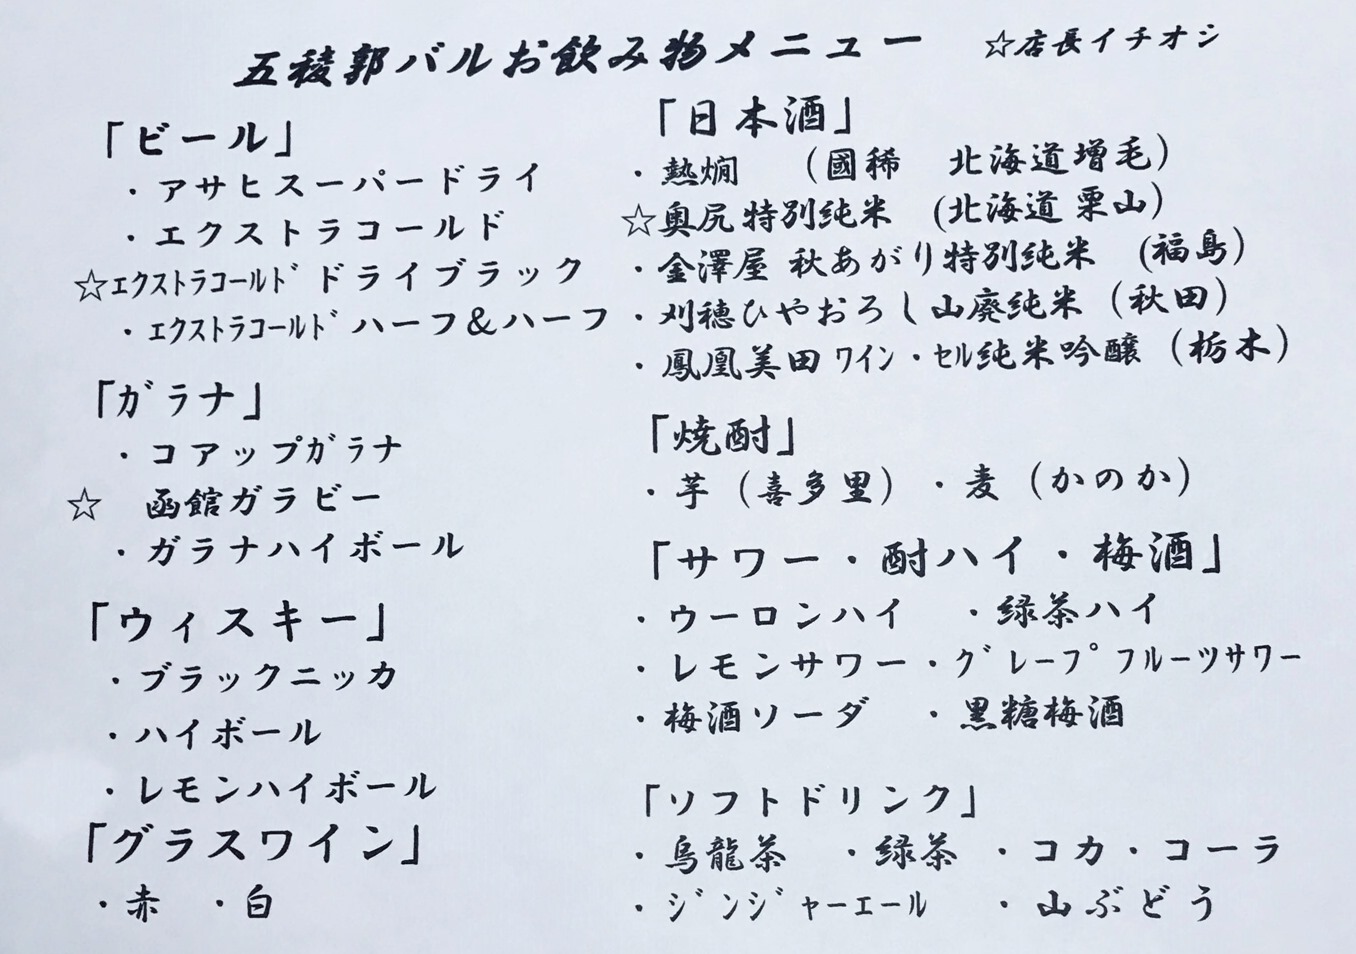 五稜郭バルお飲み物メニュー ☆店長イチオシ
「ビール」
・アサヒスーパードライ
・エクストラコールド
☆エクストラコールド ドライブラック
・エクストラコールド ハーフ&ハーフ
「ガラナ」
・コアップガラナ
☆ 函館ガラビー
・ガラナハイボール
「ウィスキー」
・ブラックニッカ
・ハイボール
・レモンハイボール
「グラスワイン」
・赤 ・白
「日本酒」
・熱燗 (國稀 北海道増毛)
☆奥尻特別純米 (北海道 栗山)
・金澤屋 秋あがり特別純米 (福島)
・刈穂ひやおろし山廃純米 (秋田)
・鳳凰美田 ワイン・セル純米吟醸 (栃木)
「焼酎」
・芋 (喜多里) ・麦 (かのか)
「サワー・酎ハイ・梅酒」
・ウーロンハイ ・緑茶ハイ
・レモンサワー・グレープフルーツサワー
・梅酒ソーダ ・黒糖梅酒
「ソフトドリンク」
・烏龍茶 ・緑茶 ・コカ・コーラ
・ジンジャーエール ・山ぶどう